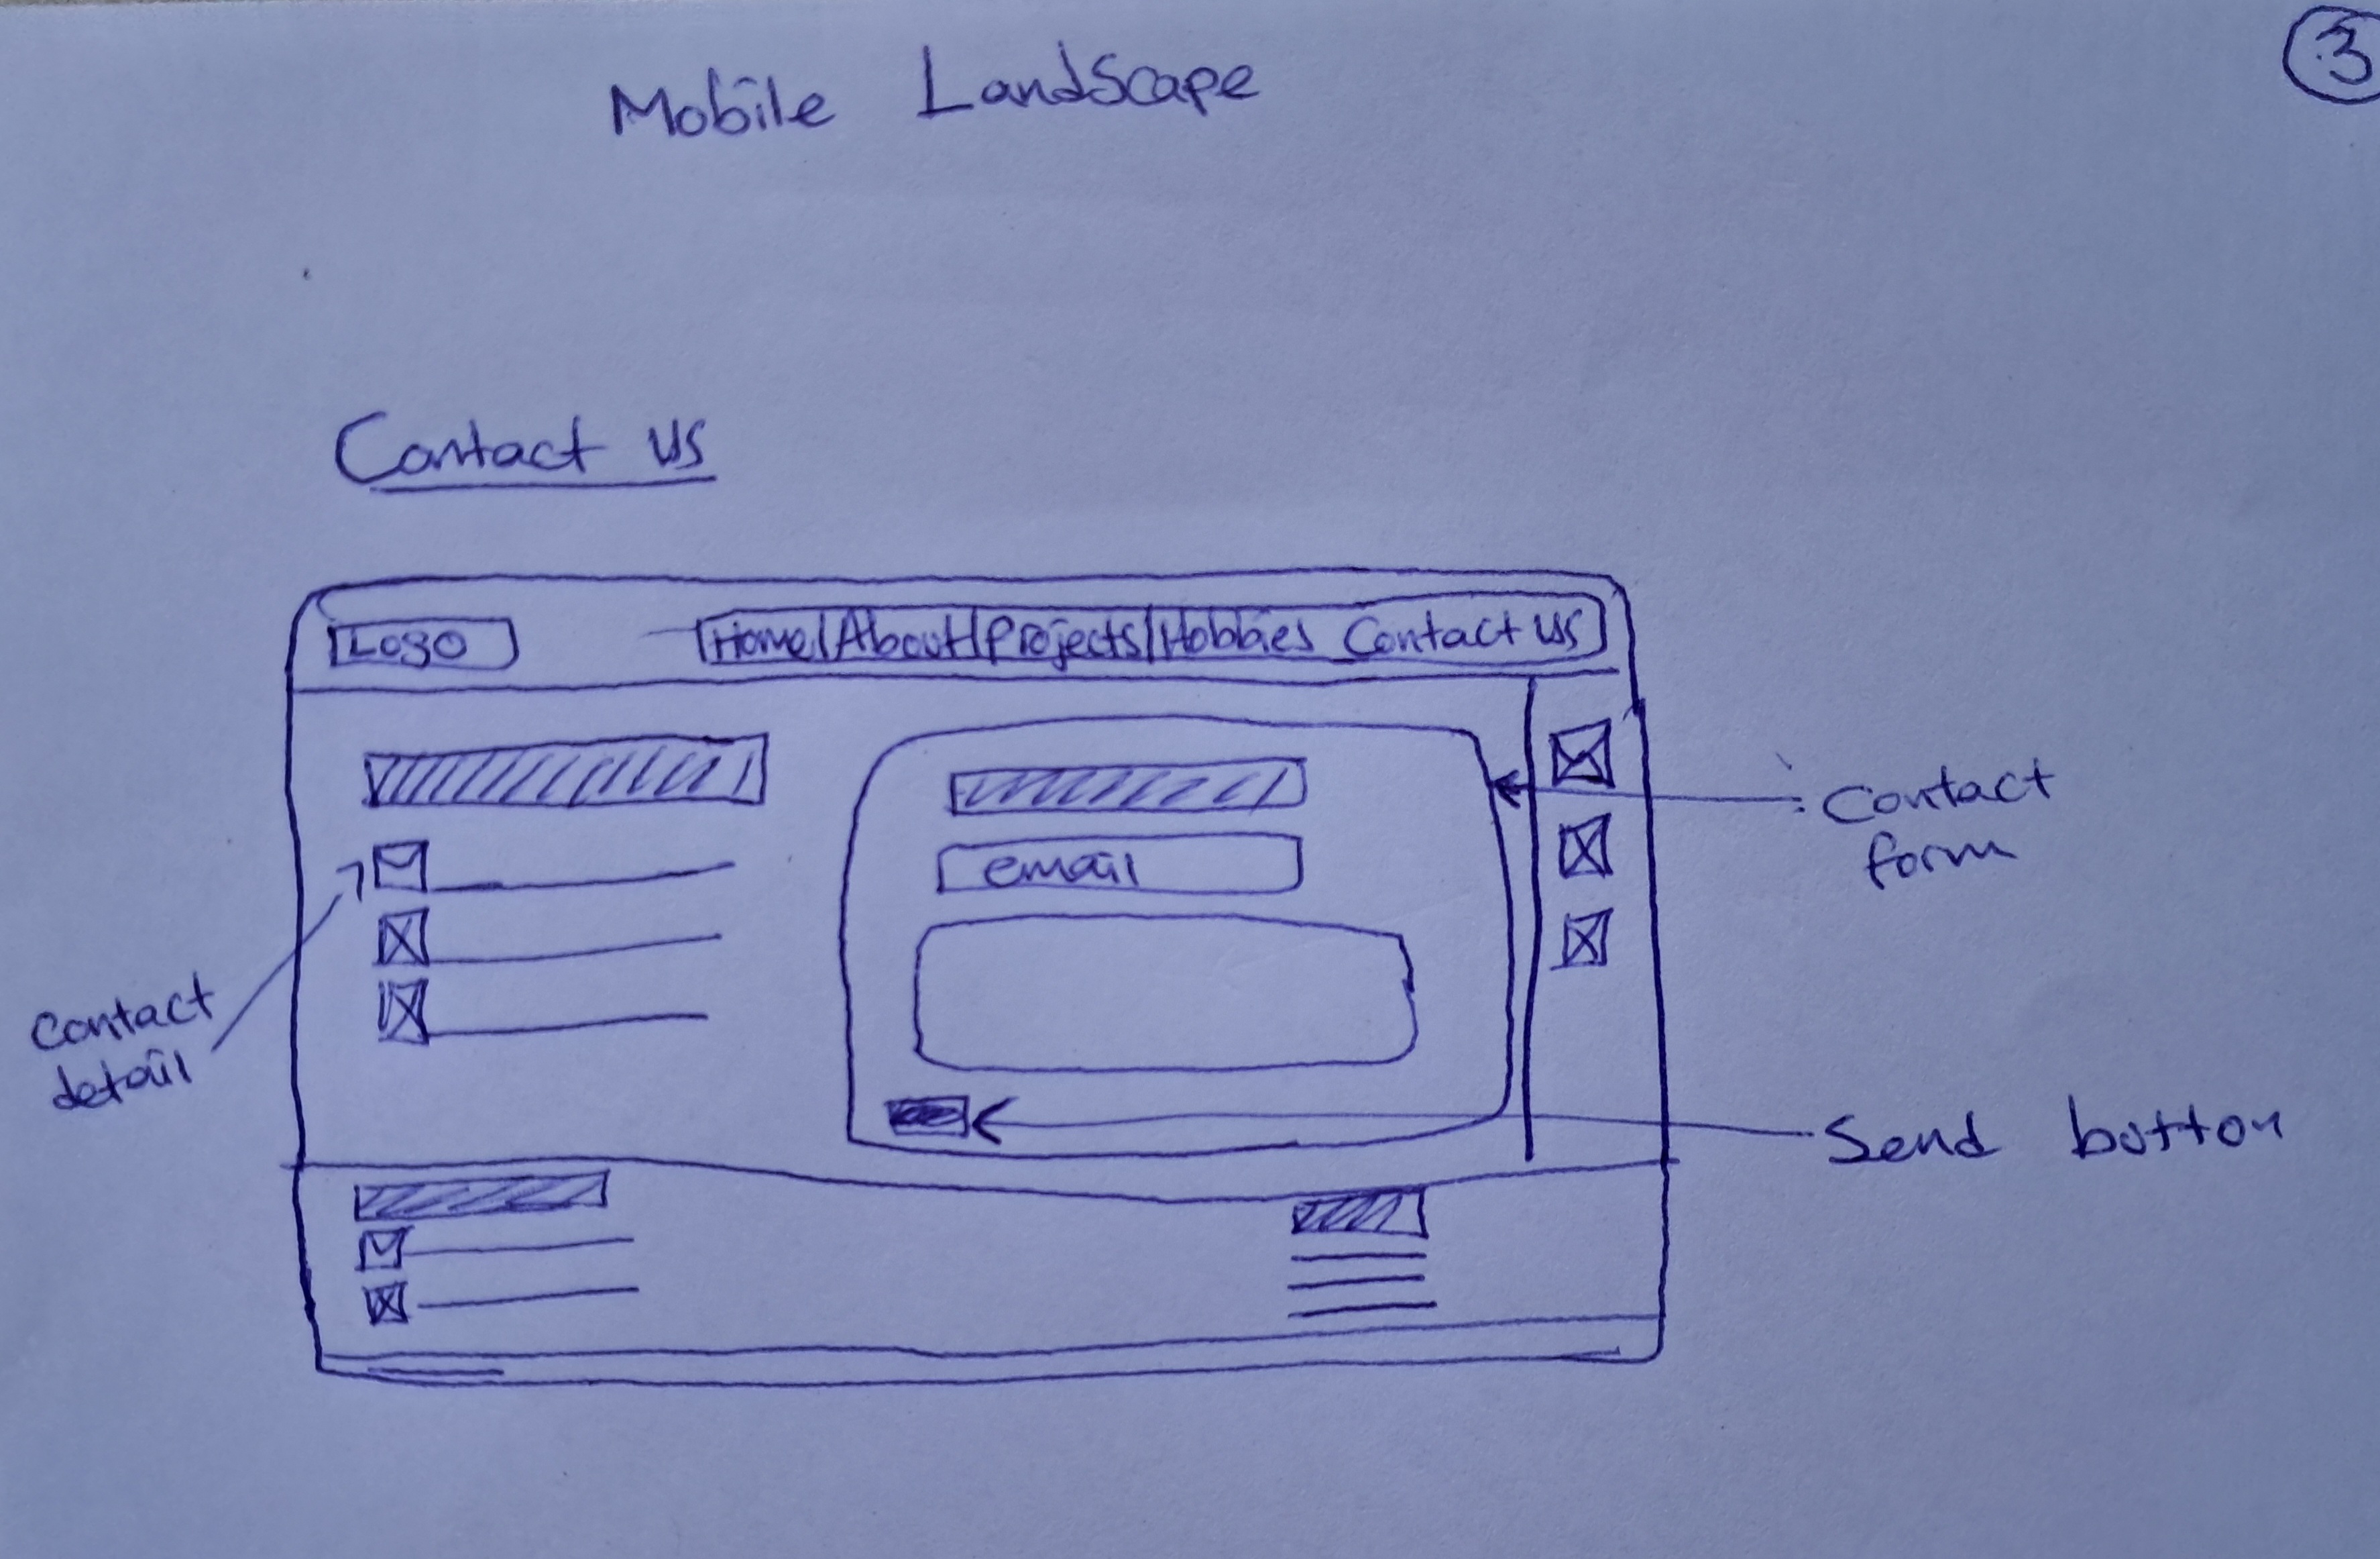 Mobile Landscape
3
Contact us
Logo
Home|About|Projects|Hobbies Contact us
email
Contact
form
Contact
detail
Send button